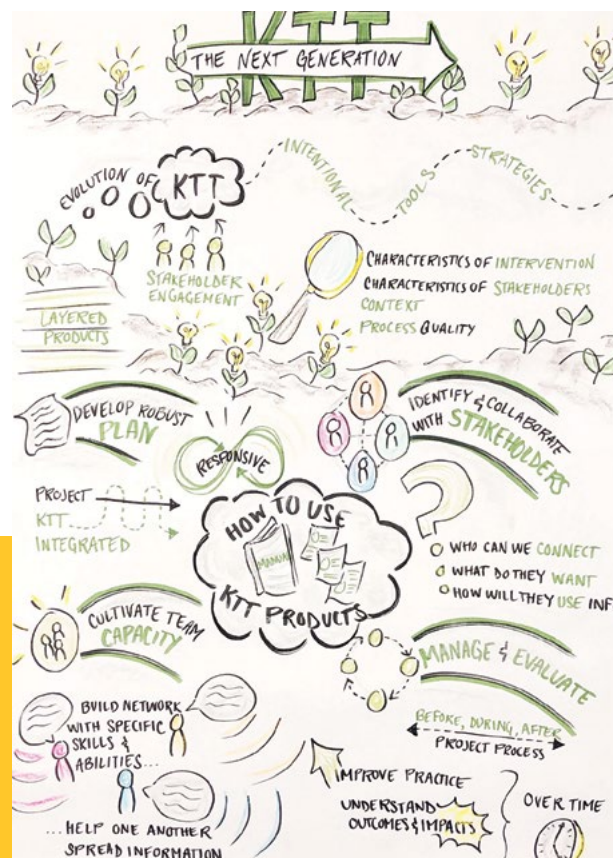 KTT
THE NEXT GENERATION
EVOLUTION OF
KTT
INTENTIONAL
TOOLS
STRATEGIES
STAKEHOLDER
ENGAGEMENT
LAYERED
PRODUCTS
CHARACTERISTICS OF INTERVENTION
CHARACTERISTICS OF STAKEHOLDERS
CONTEXT
PROCESS QUALITY
DEVELOP ROBUST
PLAN
RESPONSIVE
IDENTIFY & COLLABORATE
WITH STAKEHOLDERS
PROJECT
KTT
INTEGRATED
HOW TO USE
MANUAL
KTT PRODUCTS
WHO CAN WE CONNECT
WHAT DO THEY WANT
HOW WILL THEY USE INF
CULTIVATE TEAM
CAPACITY
MANAGE & EVALUATE
BEFORE, DURING, AFTER
PROJECT PROCESS
BUILD NETWORK
WITH SPECIFIC
SKILLS &
ABILITIES...
...HELP ONE ANOTHER
SPREAD INFORMATION
IMPROVE PRACTICE
UNDERSTAND
OUTCOMES & IMPACTS
OVER TIME